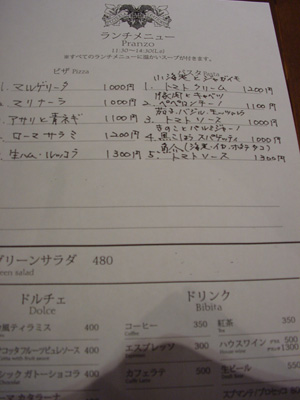 ランチメニュー
Pranzo
11:30〜14:30(Lo)
※すべてのランチメニューに温かいスープが付きます。
ピザ Pizza
1. マルゲリータ 1000円
2. マリナーラ 1000円
3. アサリと青ネギ 1100円
4. ローマサラミ 1200円
5. 生ハム・ルッコラ 1300円
パスタ Pasta
小海老とジャガイモ
1. トマトクリーム 1200円
豚肉とキャベツ
2. ペペロンチーノ 1100円
茄子・バジル・モッツァレラ
3. トマトソース 1000円
きのことパルミジャーノ
4. 黒こしょう スパゲッティ 1000円
魚介
5. トマトソース 1300円
グリーンサラダ 480
Green salad
ドルチェ
Dolce
ティラミス 400
フルーツピュレソース 400
シック ガトーショコラ 400
Chocolat
400
ドリンク
Bibita
コーヒー 350
Coffee
エスプレッソ 300
Espresso
カフェラテ 500
Caffè Latte
紅茶 350
Tea
ハウスワイン 500
生ビール 500